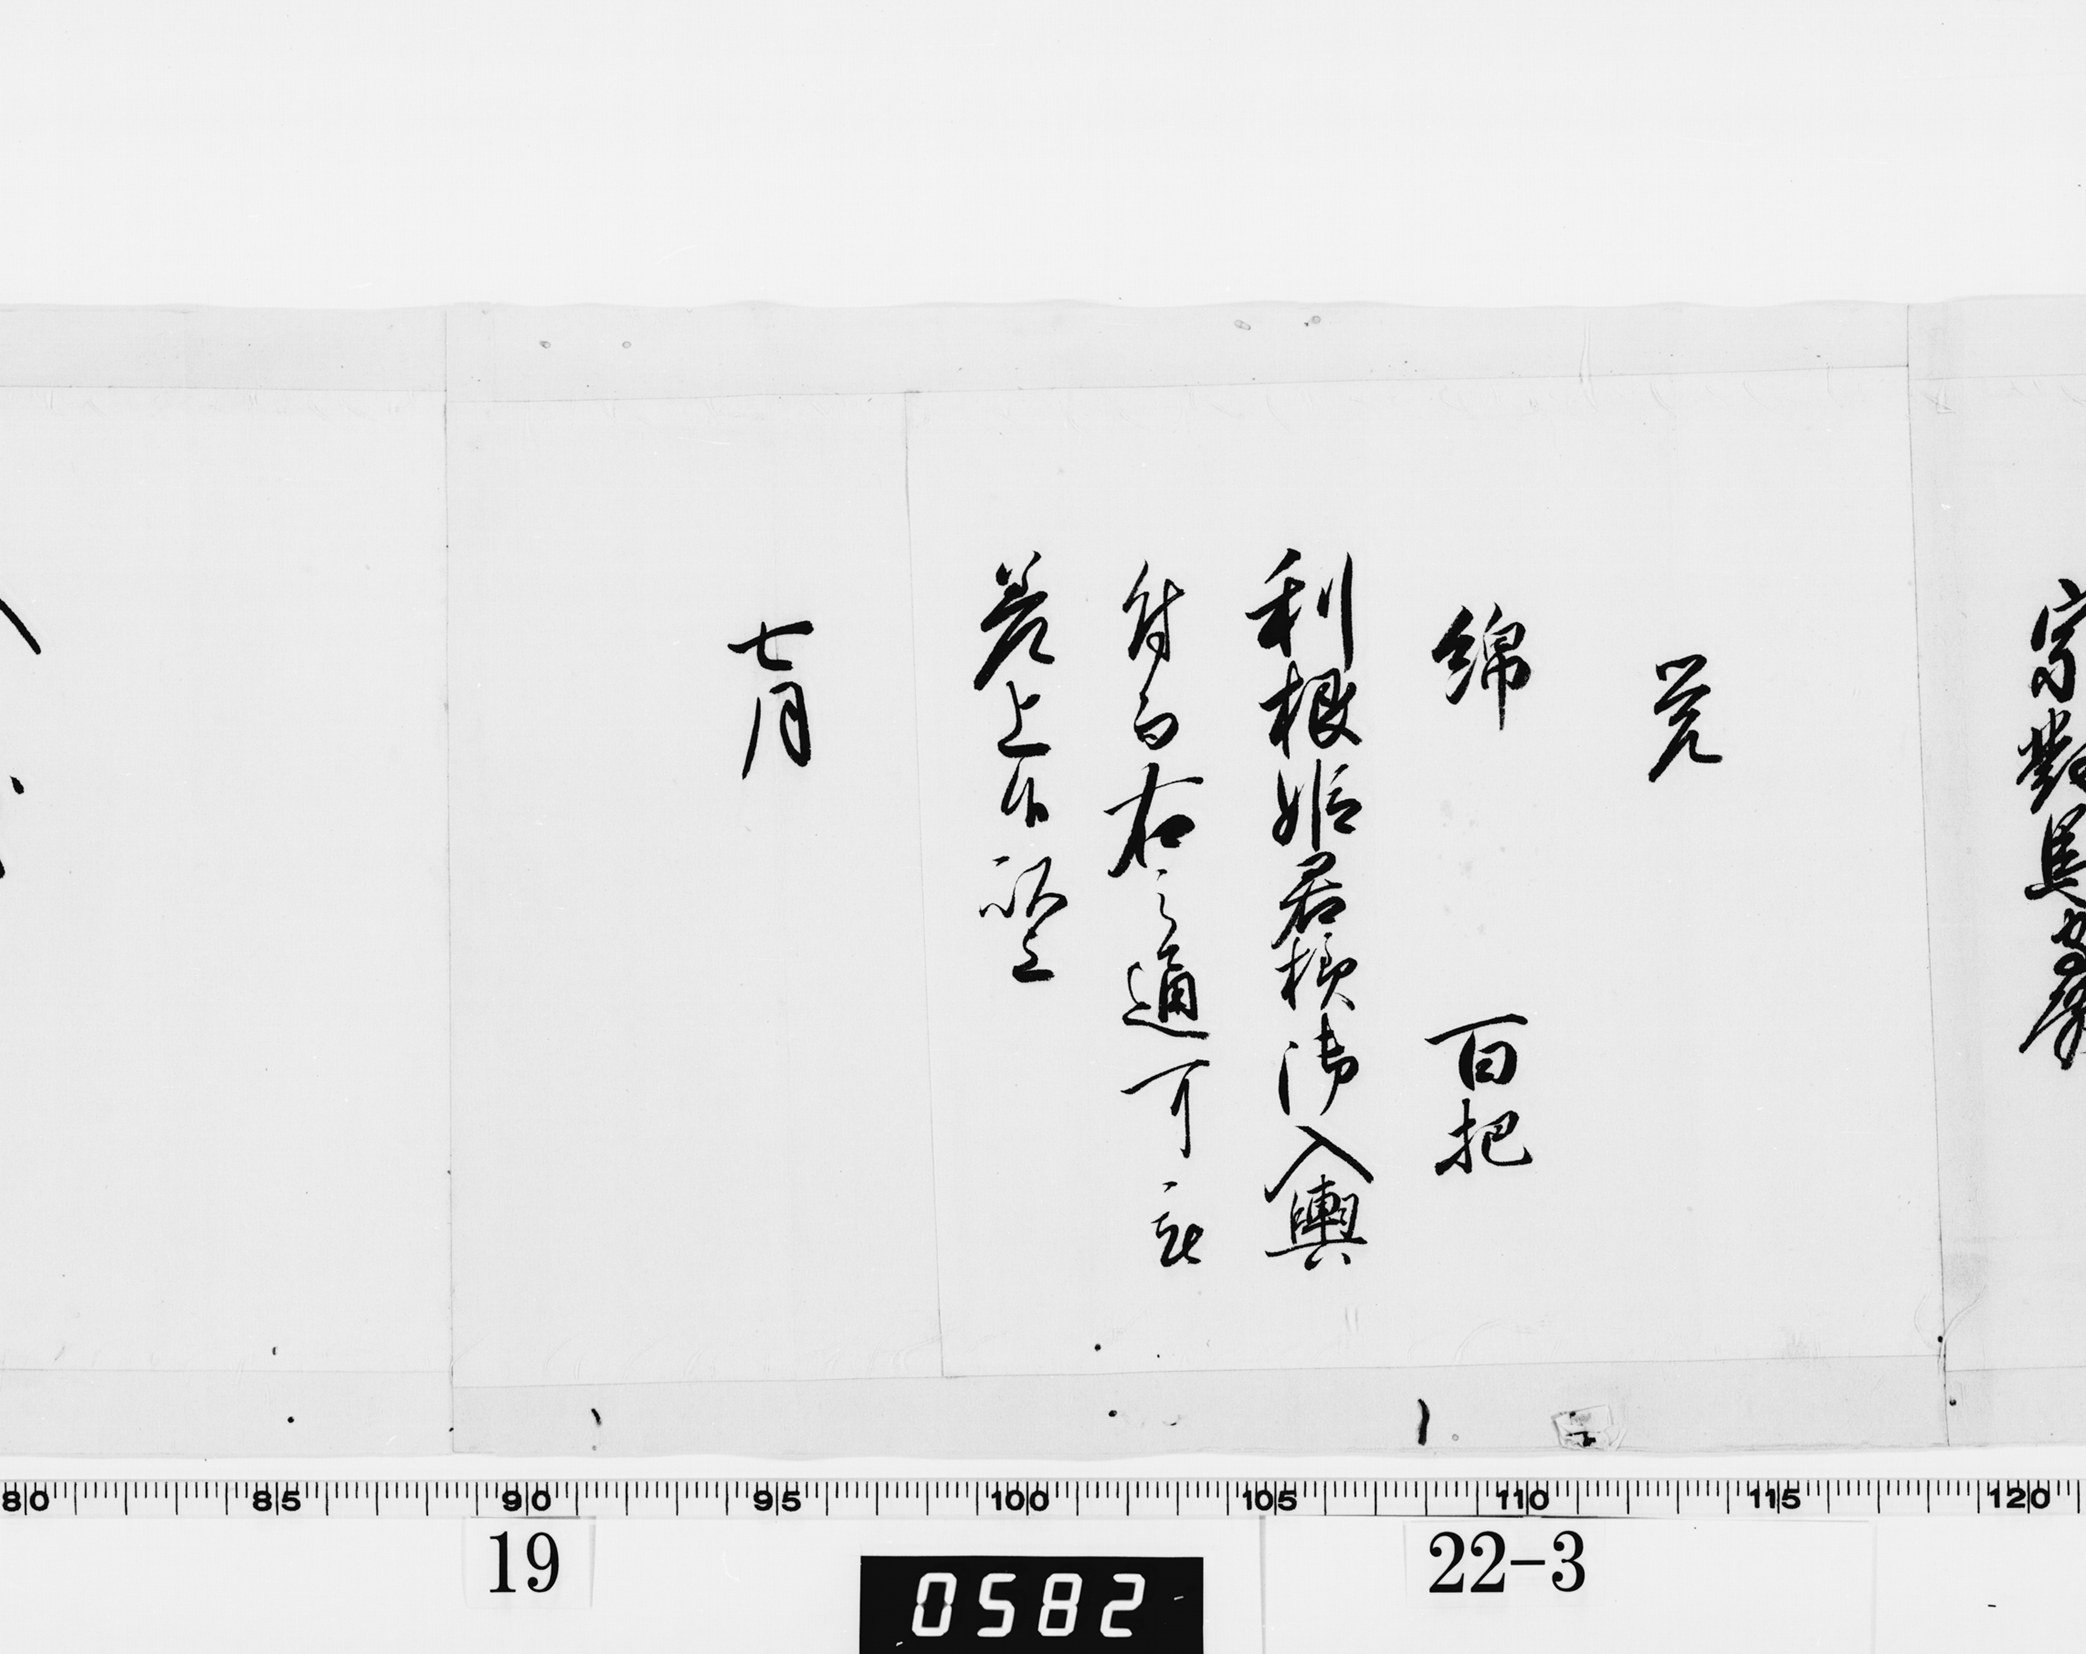 宗對馬守
覚
綿　百把
利根姫君様御入輿
付而右之通可被
差上候以上
七月
80 85 90 95 100 105 110 115 120
19
22-3
0582